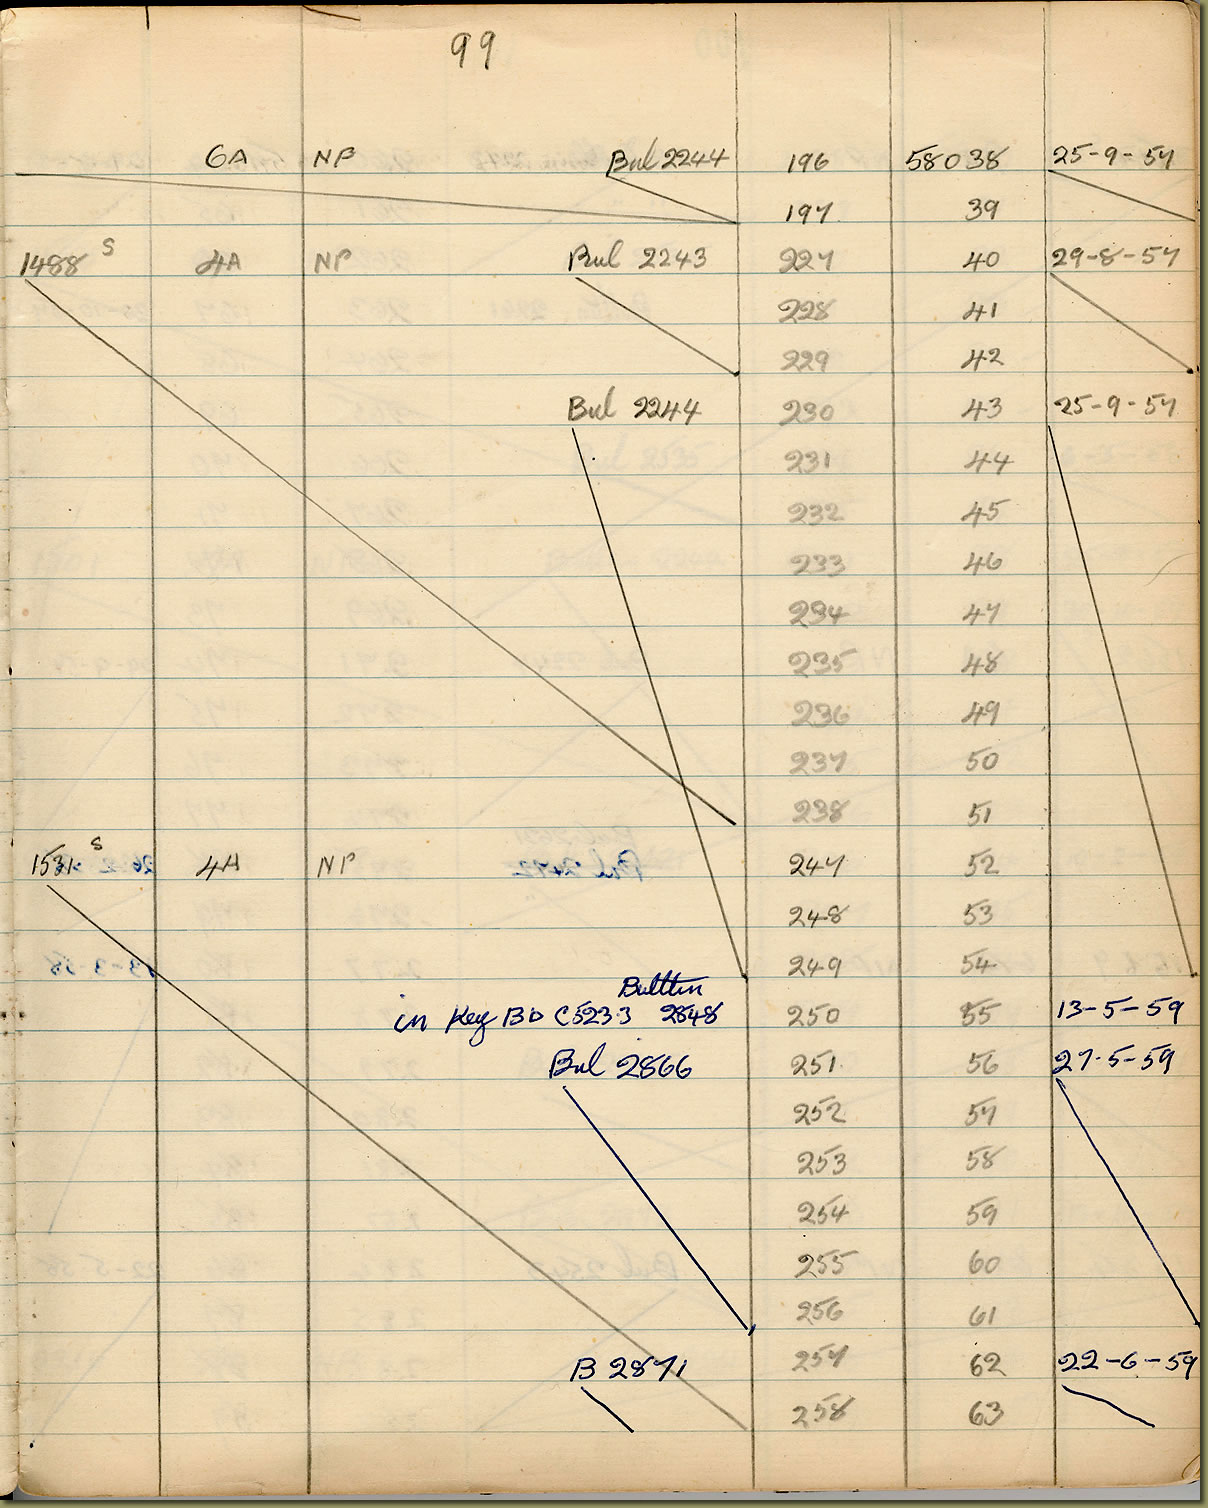 99
6A NP Bul 2244 196 58038 25-9-57
197 39
1488 S 4A NP Bul 2243 227 40 29-8-57
228 41
229 42
Bul 2244 230 43 25-9-57
231 44
232 45
233 46
234 47
235 48
236 49
237 50
238 51
1531 S 4A NP 247 52
248 53
249 54
Bulltin
in Key BD C5233 2848 250 55 13-5-59
Bul 2866 251 56 27-5-59
252 57
253 58
254 59
255 60
256 61
B 2871 257 62 22-6-59
258 63